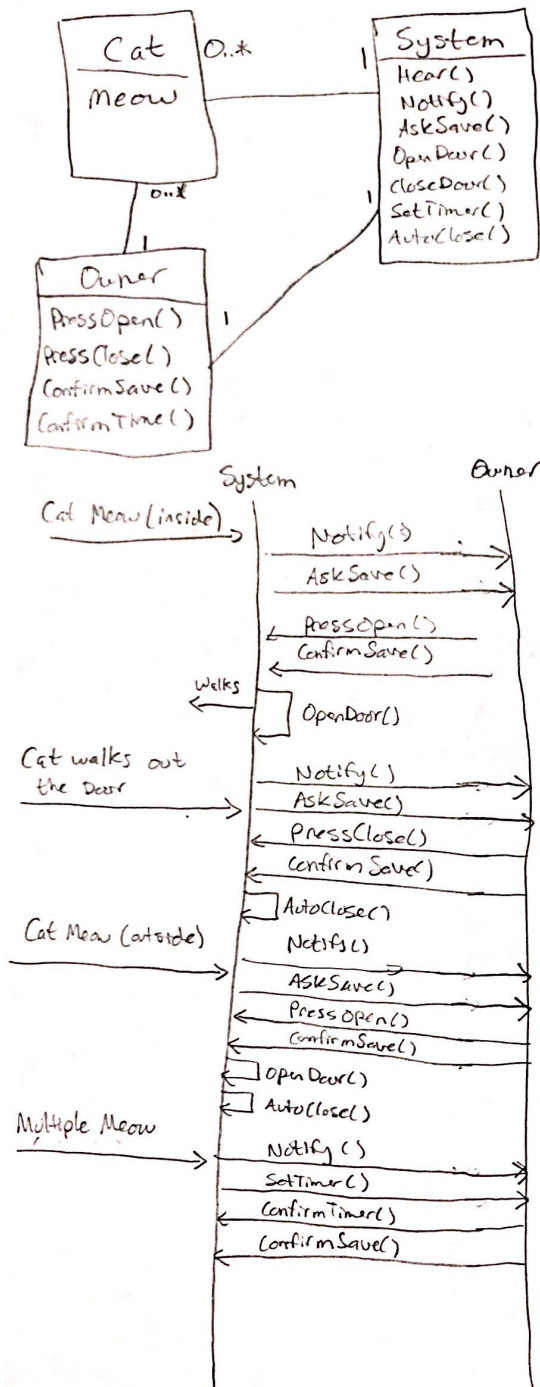 Cat
Meow
0..*
1
System
Hear()
Notify()
AskSave()
OpenDoor()
CloseDoor()
SetTimer()
AutoClose()
0..*
1
1
1
Owner
PressOpen()
PressClose()
ConfirmSave()
ConfirmTime()
System
Owner
Cat Meow (inside)
Notify()
AskSave()
PressOpen()
ConfirmSave()
Walks
OpenDoor()
Cat walks out
the Door
Notify()
AskSave()
PressClose()
ConfirmSave()
AutoClose()
Cat Meow (outside)
Notify()
AskSave()
PressOpen()
ConfirmSave()
OpenDoor()
AutoClose()
Multiple Meow
Notify()
SetTimer()
ConfirmTimer()
ConfirmSave()